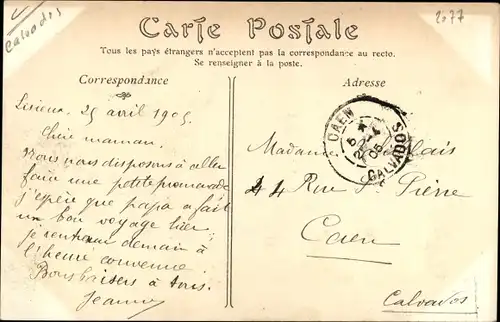 Calvados
2077
Carte Postale
Tous les pays étrangers n'acceptent pas la correspondance au recto.
Se renseigner à la poste.
Correspondance
Adresse
Lisieux 25 avril 1905
Chère maman,
Nous nous disposons à aller
faire une petite promenade
j'espère que papa a fait
un bon voyage hier,
je rentrerai demain à
l'heure convenue.
Bons baisers à tous.
CAEN
CALVADOS
Madame
44 Rue St Pierre
Caen
Calvados